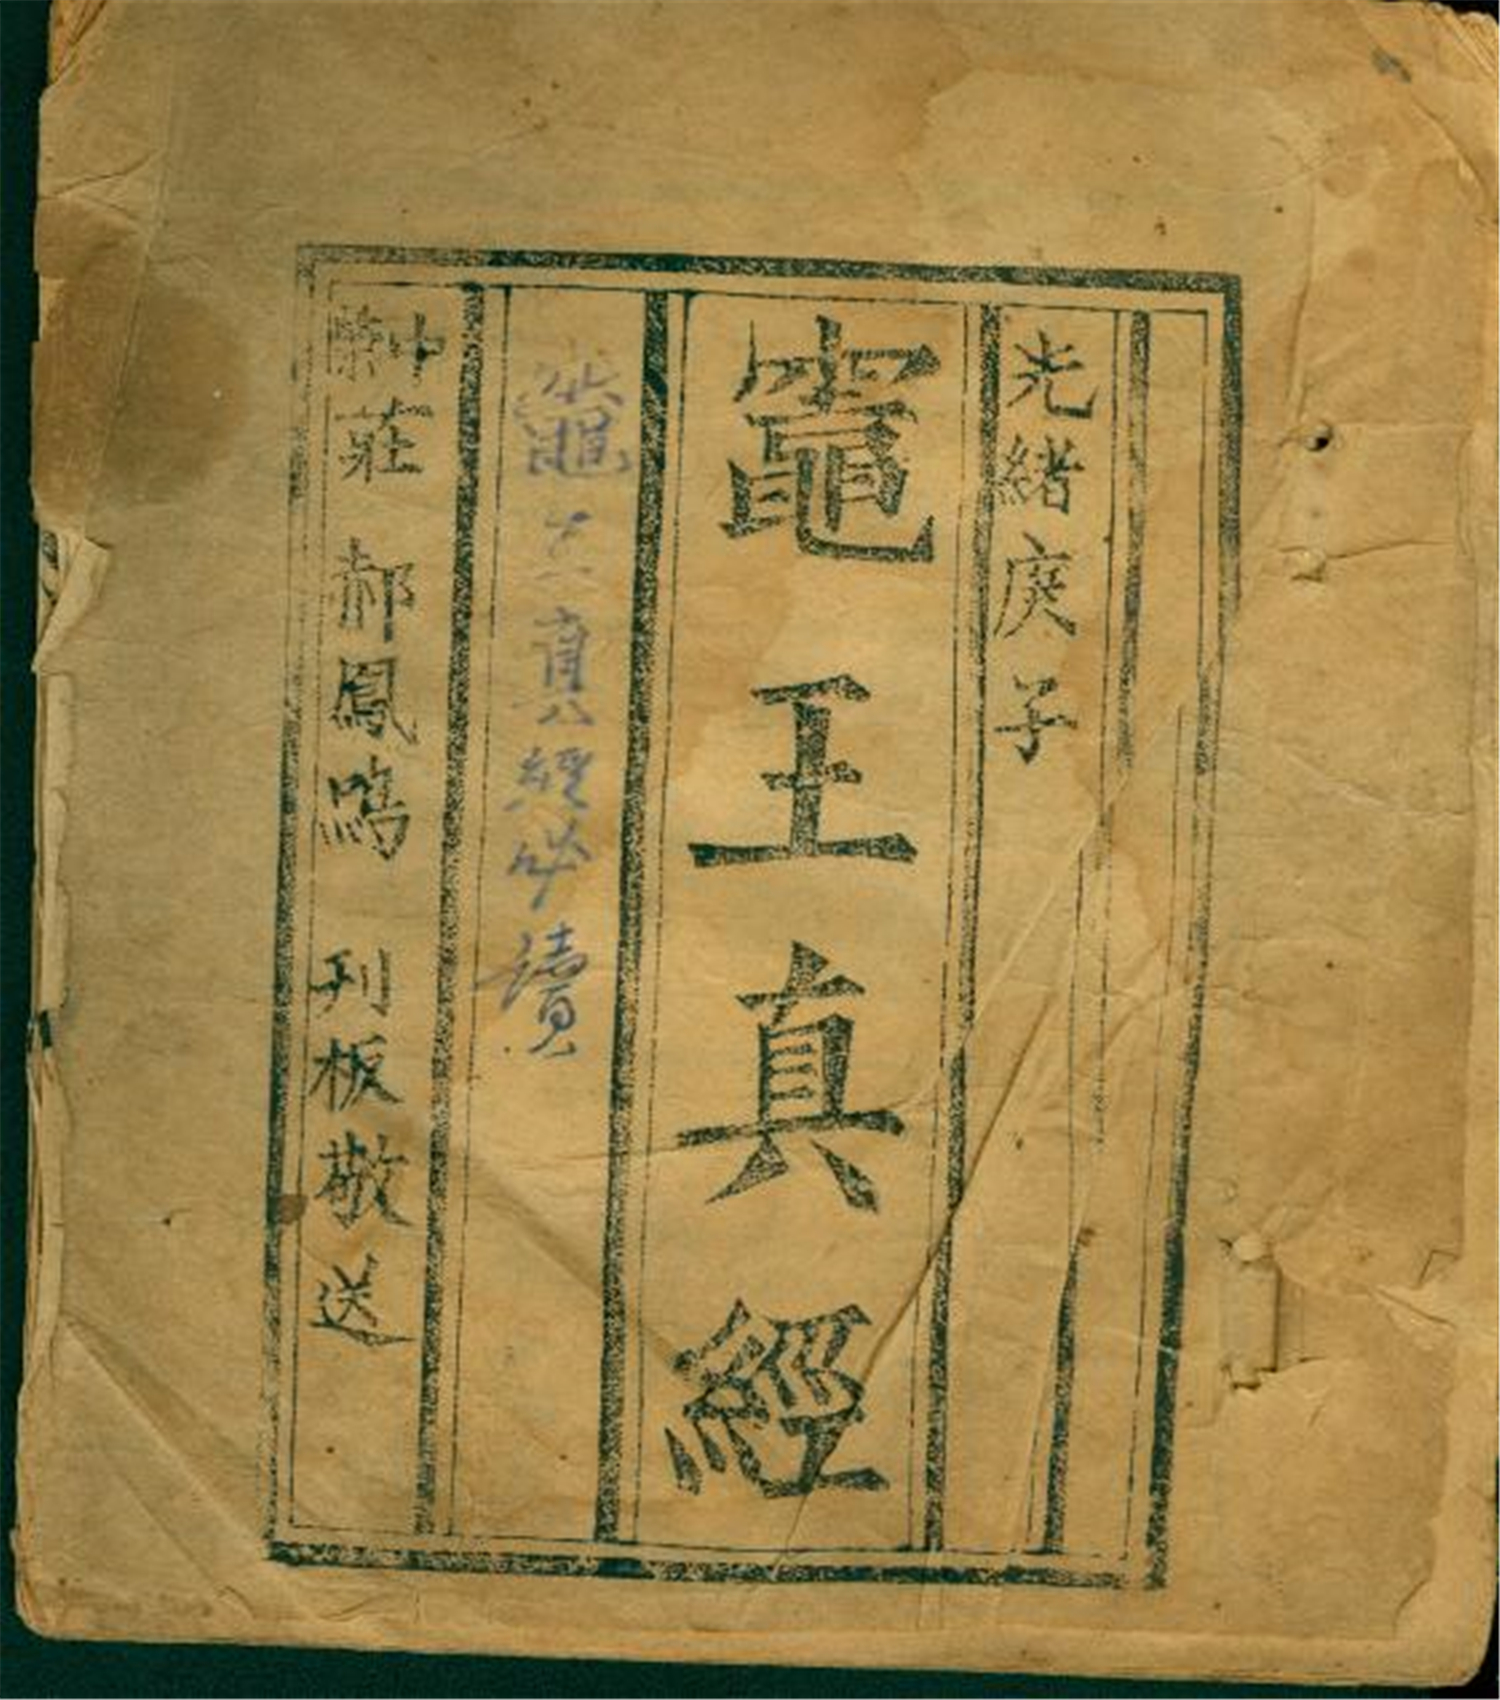 光緒庚子
竈王真經
真經必讀
中
莊 郝鳳鳴 刊板敬送